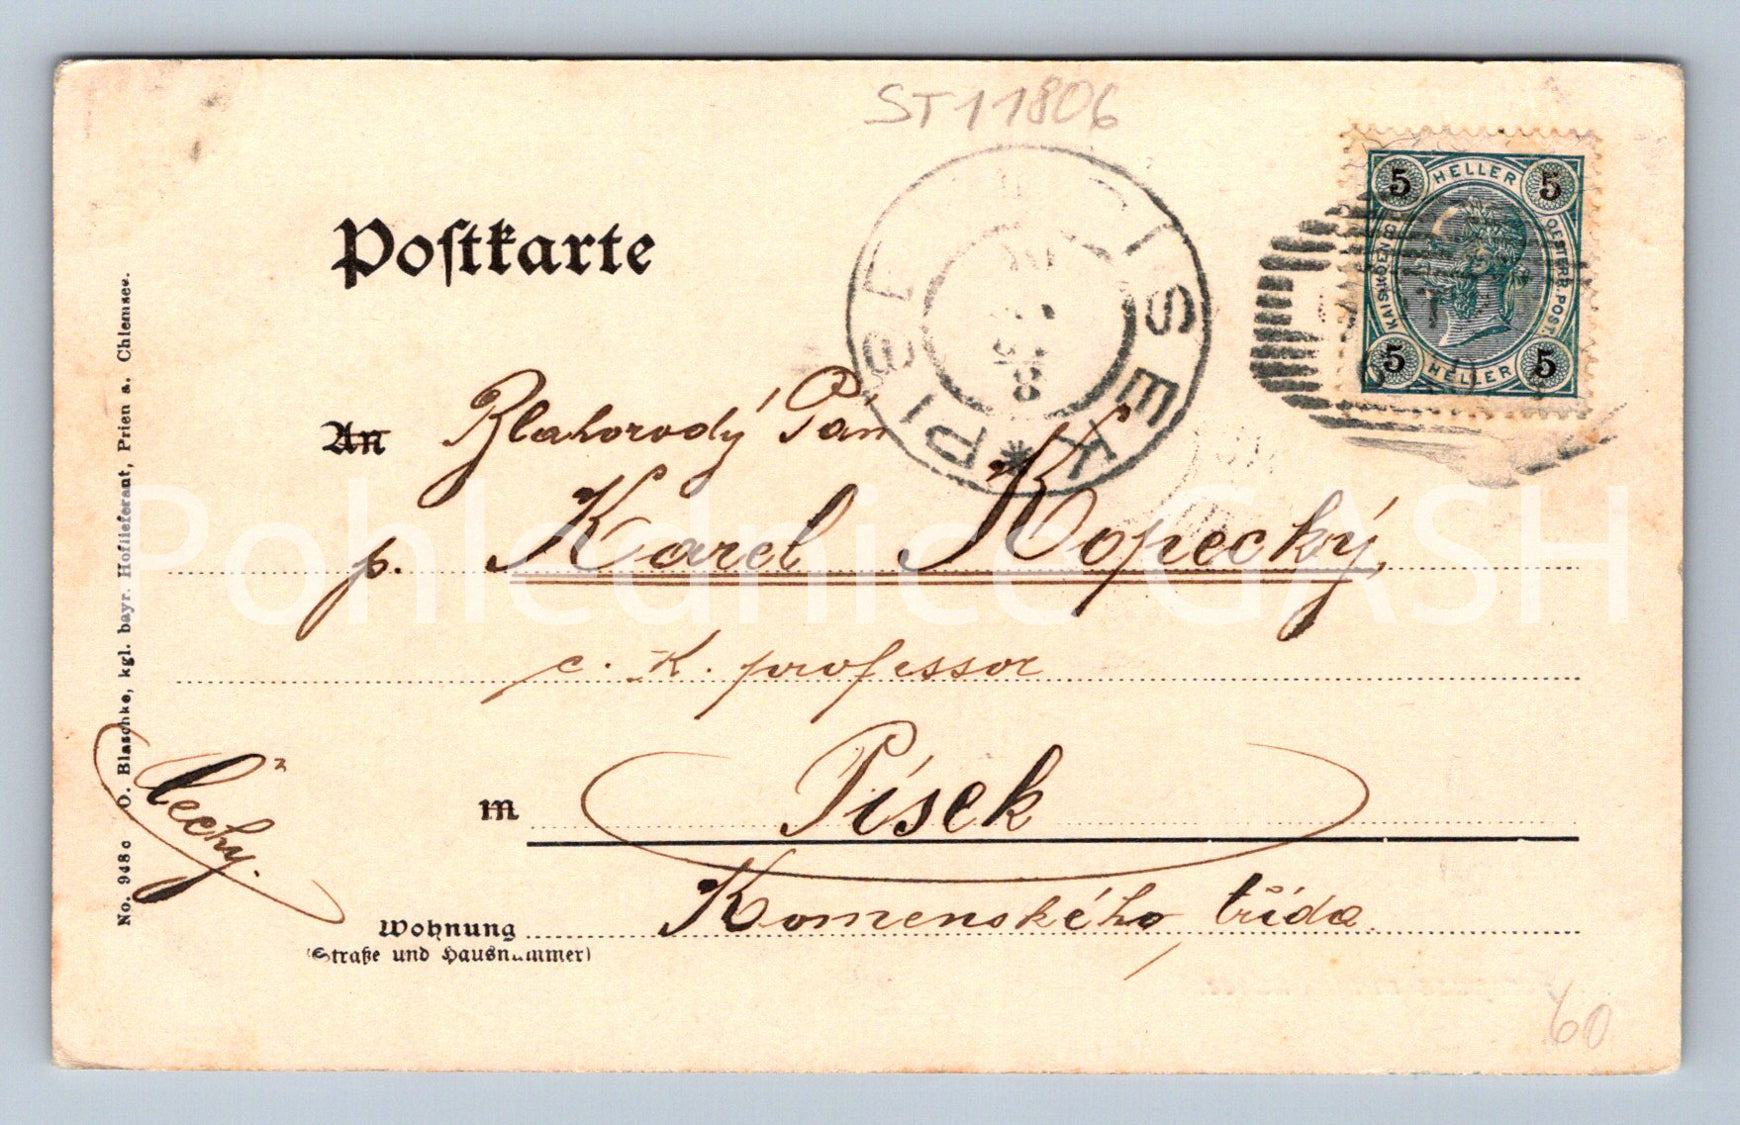 ST11806
Postkarte
5 HELLER 5
OESTERR. POST.
5 HELLER 5
PISEK * PISEK
An Blahorodý Pán
p. Karel Kopecký,
c. K. professor
m Písek
Čechy.
Wohnung Komenského třída.
(Straße und Hausnummer)
No. 948c O. Blaschke, kgl. bayr. Hoflieferant, Prien a. Chiemsee.
60
Pohlednice GASH